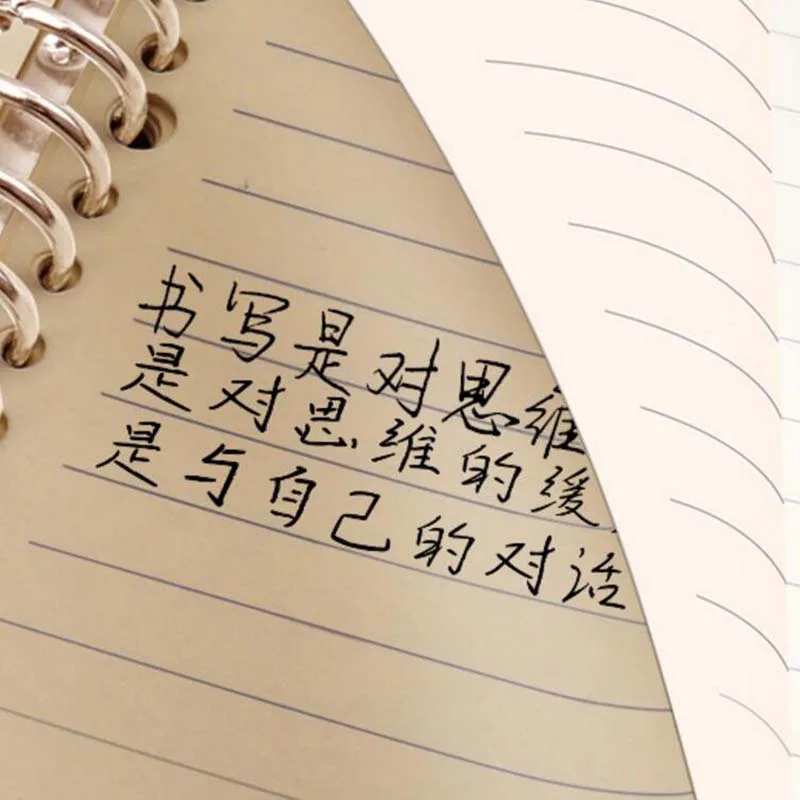 书写是对思维
是对思维的缓
是与自己的对话